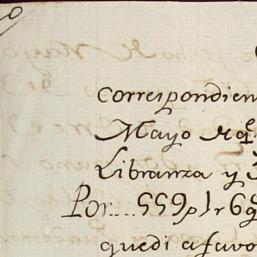 Correspondien
Mayo
Libranza y
Por.... 559p 1r 6g
quedi a favo